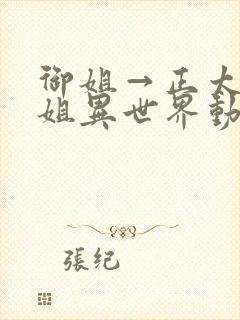 御姐→正太
姐異世界動
張紀